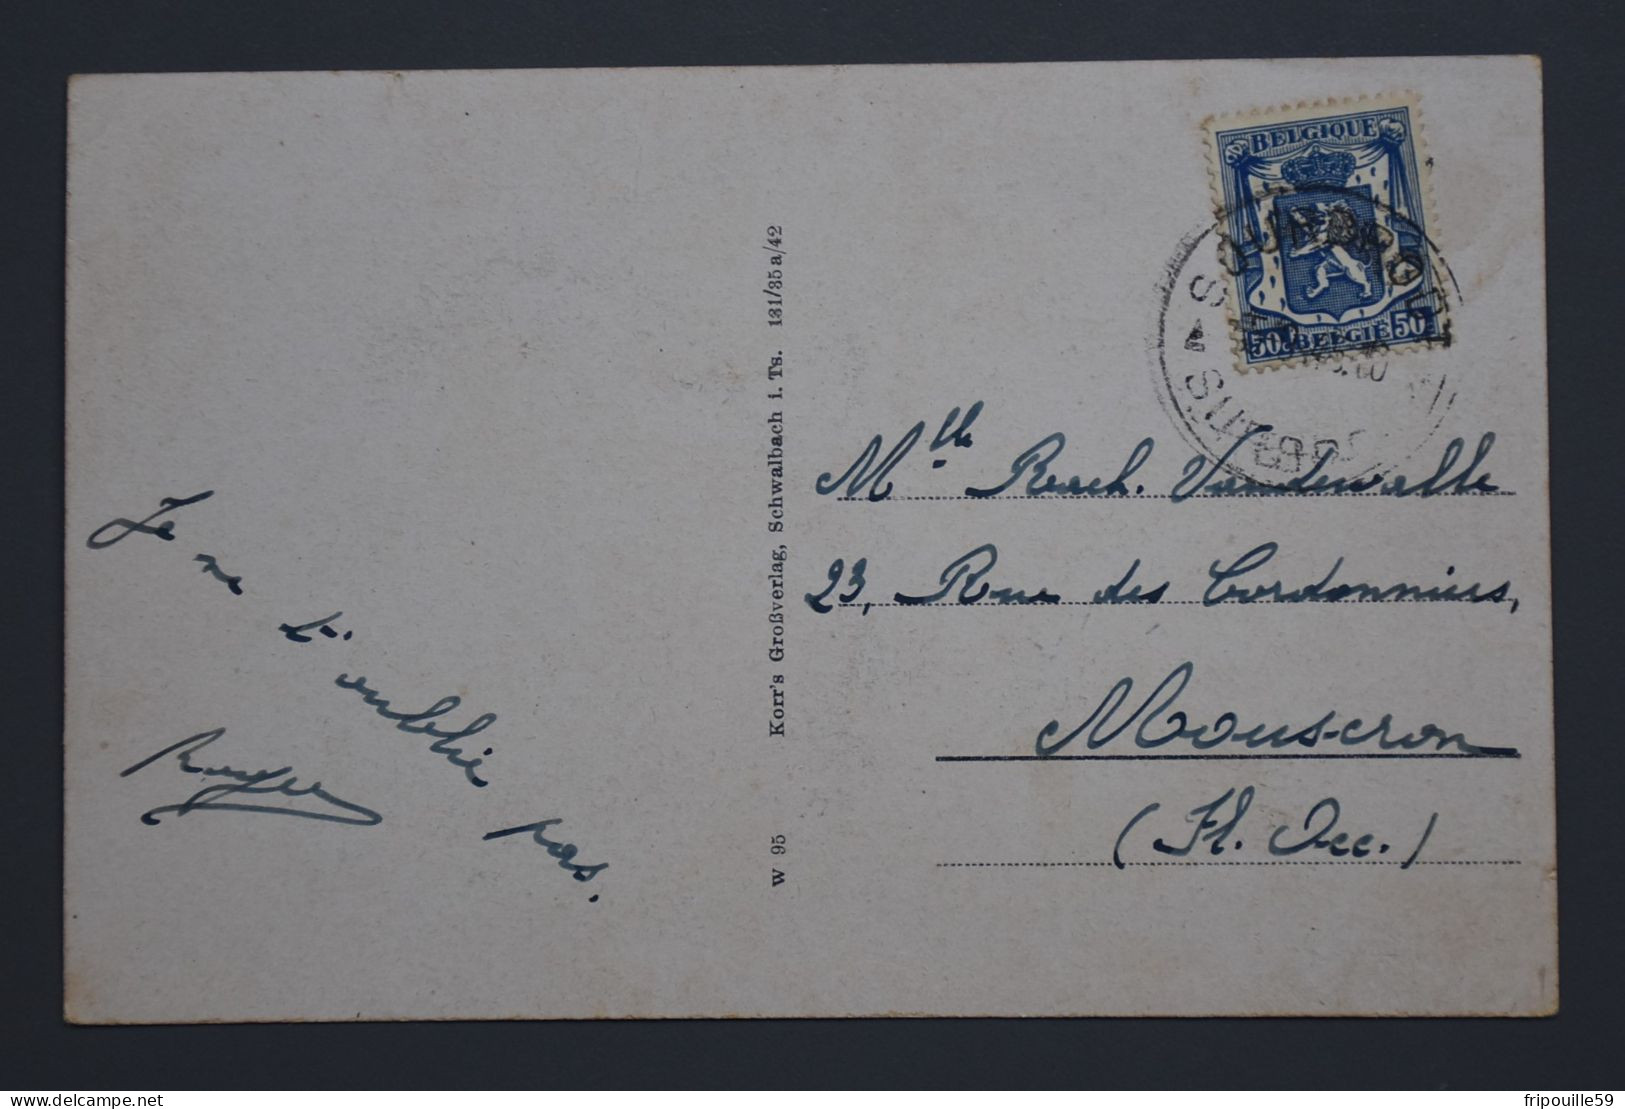 BELGIQUE
50c BELGIE 50c
Je ne t'oublie pas.
Roger
W 95 Korr's Großverlag, Schwalbach i. Ts. 131/35a/42
Mlle Rach. Vandewalle
23, Rue des Cordonniers,
Mouscron
(Fl. Occ.)
delcampe.net
fripouille59